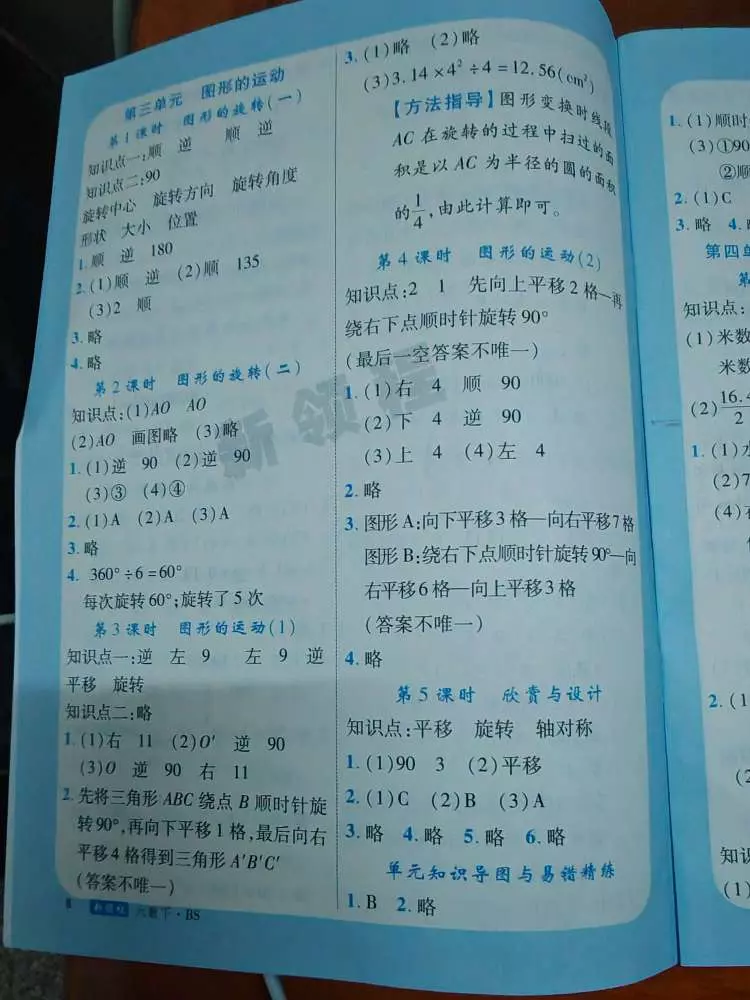 第三单元 图形的运动
第1课时 图形的旋转(一)
知识点一:顺 逆 顺 逆
知识点二:90
旋转中心 旋转方向 旋转角度
形状 大小 位置
1.顺 逆 180
2.(1)顺 逆 (2)顺 135
(3)2 顺
3.略
4.略
第2课时 图形的旋转(二)
知识点:(1)AO AO
(2)AO 画图略 (3)略
1.(1)逆 90 (2)逆 90
(3)③ (4)④
2.(1)A (2)A (3)A
3.略
4. 360°÷6=60°
每次旋转60°;旋转了5次
第3课时 图形的运动(1)
知识点一:逆 左 9 左 9 逆
平移 旋转
知识点二:略
1.(1)右 11 (2)O′ 逆 90
(3)O 逆 90 右 11
2.先将三角形ABC绕点B顺时针旋
转90°,再向下平移1格,最后向右
平移4格得到三角形A′B′C′
(答案不唯一)
8 新领程 六数下·BS
3.(1)略 (2)略
(3)3.14×4²÷4=12.56(cm²)
【方法指导】图形变换时线段
AC在旋转的过程中扫过的面
积是以AC为半径的圆的面积
的1/4,由此计算即可。
第4课时 图形的运动(2)
知识点:2 1 先向上平移2格—再
绕右下点顺时针旋转90°
(最后一空答案不唯一)
1.(1)右 4 顺 90
(2)下 4 逆 90
(3)上 4 (4)左 4
2.略
3.图形A:向下平移3格—向右平移7格
图形B:绕右下点顺时针旋转90°—向
右平移6格—向上平移3格
(答案不唯一)
4.略
第5课时 欣赏与设计
知识点:平移 旋转 轴对称
1.(1)90 3 (2)平移
2.(1)C (2)B (3)A
3.略 4.略 5.略 6.略
单元知识导图与易错精练
1.B 2.略
新领程
1.(1)顺时
(3)①90
②顺
2.(1)C
3.略 4.
第四单
第
知识点:
(1)米数
米数
(2)16.4/2
1.(1)水
(2)7
(4)
2.(1)
知识
(1)